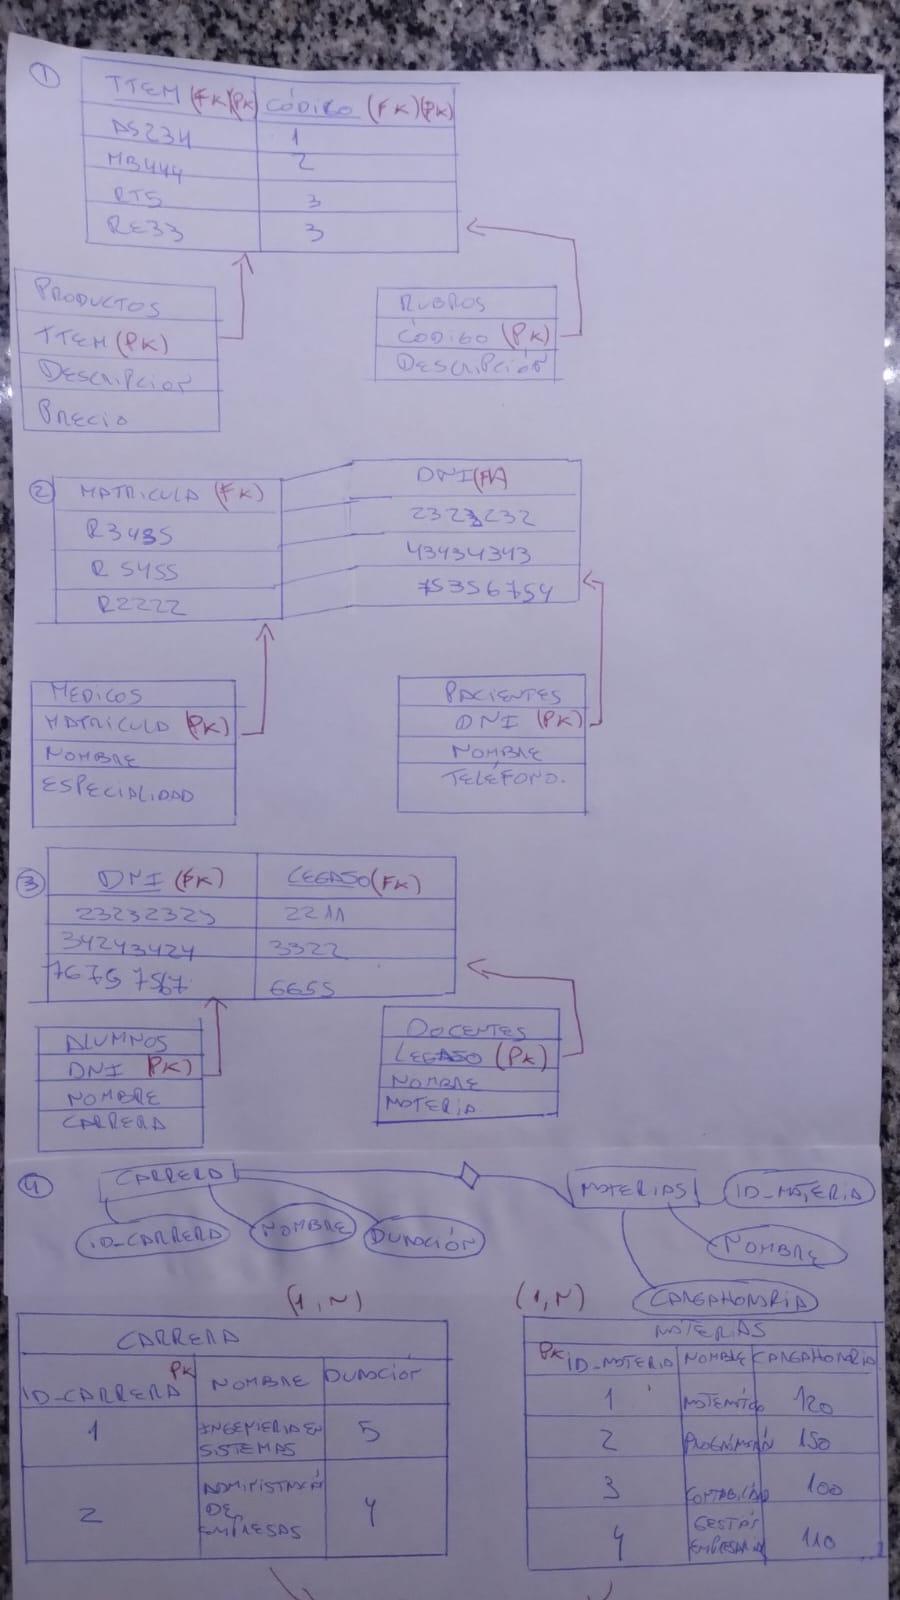 1
ITEM (FK)(PK) CÓDIGO (FK)(PK)
AS234 1
MB444 2
RT5 3
RE33 3
PRODUCTOS
ITEM (PK)
DESCRIPCIÓN
PRECIO
RUBROS
CÓDIGO (PK)
DESCRIPCIÓN
2
MATRICULA (FK) DNI (FK)
R3435 2323232
R5455 43434343
R2222 75356754
MEDICOS
MATRICULA (PK)
NOMBRE
ESPECIALIDAD
PACIENTES
DNI (PK)
NOMBRE
TELÉFONO.
3
DNI (FK) LEGAJO (FK)
23232323 2211
34243424 3322
76757567 6655
ALUMNOS
DNI PK)
NOMBRE
CARRERA
DOCENTES
LEGAJO (PK)
NOMBRE
MATERIA
4
CARRERA
ID_CARRERA NOMBRE DURACIÓN
MATERIAS ID_MATERIA
NOMBRE
CARGAHORARIA
(1,N) (1,N)
CARRERA
ID_CARRERA PK NOMBRE DURACIÓN
1 INGENIERIA EN SISTEMAS 5
2 ADMINISTRACIÓN DE EMPRESAS 4
MATERIAS
PK ID_MATERIA NOMBRE CARGAHORARIA
1 MATEMÁTICA 120
2 PROGRAMACIÓN 150
3 CONTABILIDAD 100
4 GESTIÓN EMPRESARIAL 110